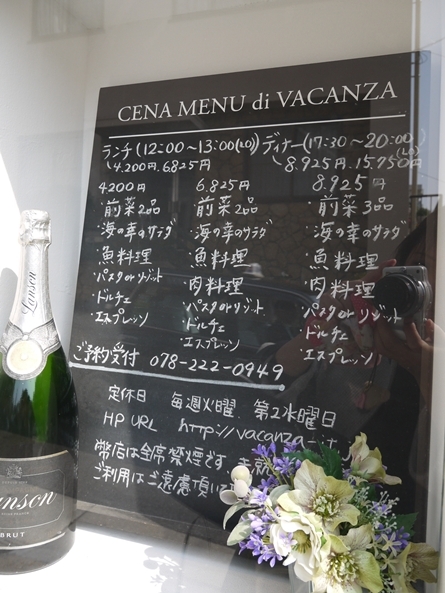 CENA MENU di VACANZA
ランチ(12:00~13:00(LO)) ディナー(17:30~20:00(LO))
4.200円.6.825円 8.925円.15.750円
4200円
・前菜2品
・海の幸のサラダ
・魚料理
・パスタorリゾット
・ドルチェ
・エスプレッソ
6.825円
・前菜2品
・海の幸のサラダ
・魚料理
・肉料理
・パスタorリゾット
・ドルチェ
・エスプレッソ
8.925円
・前菜3品
・海の幸のサラダ
・魚料理
・肉料理
・パスタorリゾット
・ドルチェ
・エスプレッソ
ご予約受付 078-222-0949
定休日 毎週火曜 第2水曜日
HP URL http://vacanza-
弊店は全席禁煙です
ご利用はご遠慮頂い
Lanson
Lanson
BRUT